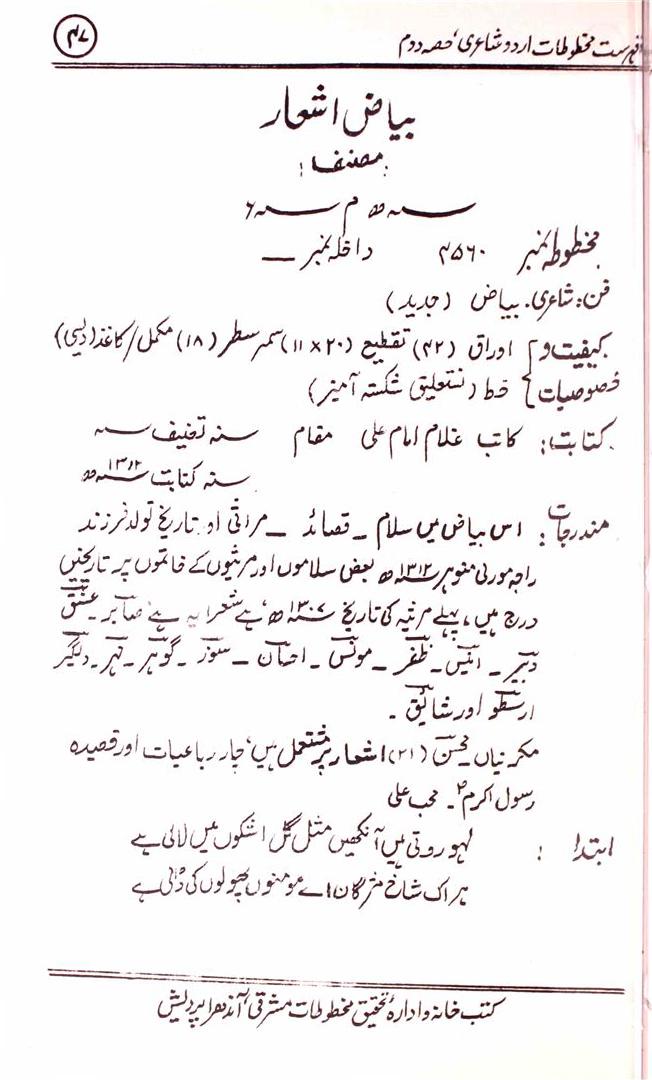 فہرست مخطوطات اردو شاعری، حصہ دوم ۴۷
بیاض اشعار
مصنف :
سنہ ھ م سنہ ء
مخطوطہ نمبر ۴۵۶۰ داخلہ نمبر —
فن: شاعری. بیاض (جدید)
کیفیت و اوراق (۴۲) تقطیع (۲۰×۱۱) سمر سطر (۱۸) مکمل/کاغذ (دیسی)
خصوصیات خط (نستعلیق شکستہ آمیز)
کتابت: کاتب غلام امام علی مقام سنہ تصنیف سنہ
سنہ کتابت ۱۳۱۲ھ
مندرجات: اس بیاض میں سلام ۔ قصائد ۔ مراثی اور تاریخ تولد فرزند
راجہ مورلی منوہر ۱۳۱۲ھ بعض سلاموں اور مرثیوں کے خاتموں پر تاریخیں
درج ہیں، پہلے مرثیہ کی تاریخ ۱۳۰۷ھ ہے شعرا یہ ہے صابر۔ عشق
دبیر ۔ انیس۔ ظفر ۔ مونس ۔ احسان ۔ سوز ۔ گوہر ۔ مہر۔ دلگیر
ارسطو اور شائق ۔
مکرنیاں محسن (۲۱) اشعار پر مشتمل ہیں، چار رباعیات اور قصیدہ
رسول اکرم ؐ ۔ محب علی
ابتدا : لہو روتی ہیں آنکھیں مثل گل اشکوں میں لالی ہے
ہر اک شاخ مژگان اے مومنوں پھولوں کی ڈالی ہے
کتب خانہ و ادارۂ تحقیق مخطوطات مشرقی، آندھرا پردیش